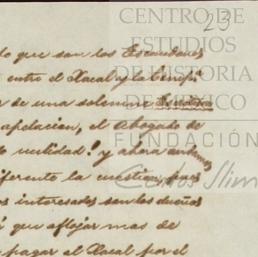 CENTRO DE
23
ESTUDIOS
DE HISTORIA
DE MÉXICO
FUNDACIÓN
Carlos Slim
do que son los Escandones
entre el Nacal y la
de una solemne
apelacion, el abogado de
nulidad! y ahora
diferente la cuestion, pues
interesados son los dueños
que aflojar mas de
pagar al Nacal por el